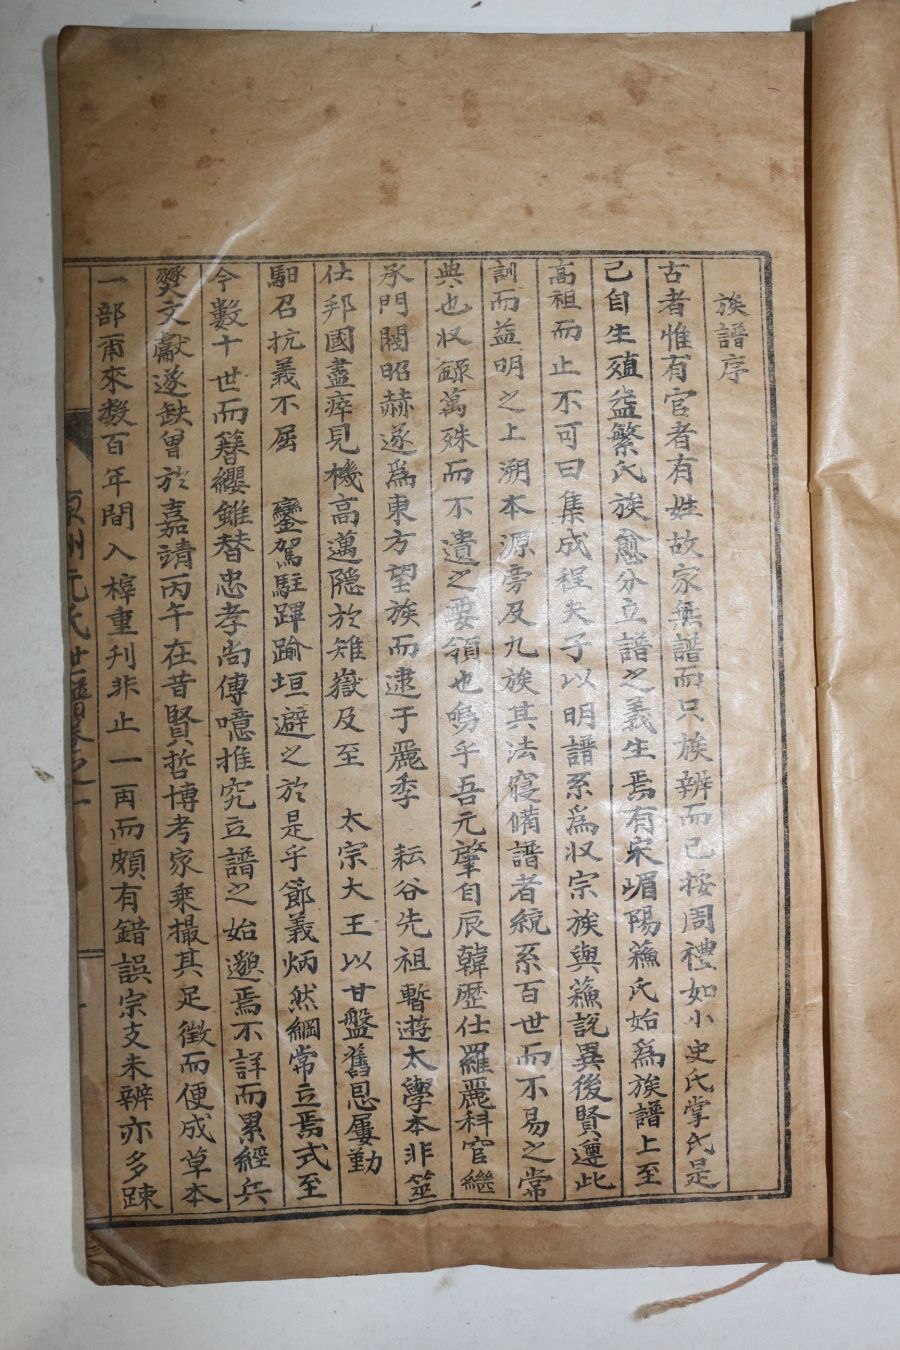 族譜序
古者惟有官者有姓故家無譜而只族辨而已按周禮如小史氏掌氏是
已自生殖益繁氏族愈分立譜之義生焉有宋嵋陽蘓氏始爲族譜上至
高祖而止不可曰集成程夫子以明譜系爲収宗族與蘓說異後賢遵此
訓而益明之上溯本源旁及九族其法寔備譜者統系百世而不易之常
典也収錄萬殊而不遺之要領也嗚乎吾元肇自辰韓歷仕羅麗科官繼
承門閥昭赫遂爲東方望族而逮于麗季 耘谷先祖暫遊太學本非筮
仕邦國盡瘁見機高邁隱於雉嶽及至 太宗大王以甘盤舊恩屢勤
馹召抗義不屈 鑾駕駐蹕踰垣避之於是乎節義炳然綱常立焉式至
今數十世而簪纓雖替忠孝尚傳噫推究立譜之始邈焉不詳而累經兵
燹文獻遂缺曾於嘉靖丙午在昔賢哲博考家乘撮其足徵而便成草本
一部爾來数百年間入榟重刊非止一再而頗有錯誤宗支未辨亦多踈
原州元氏世譜卷之一